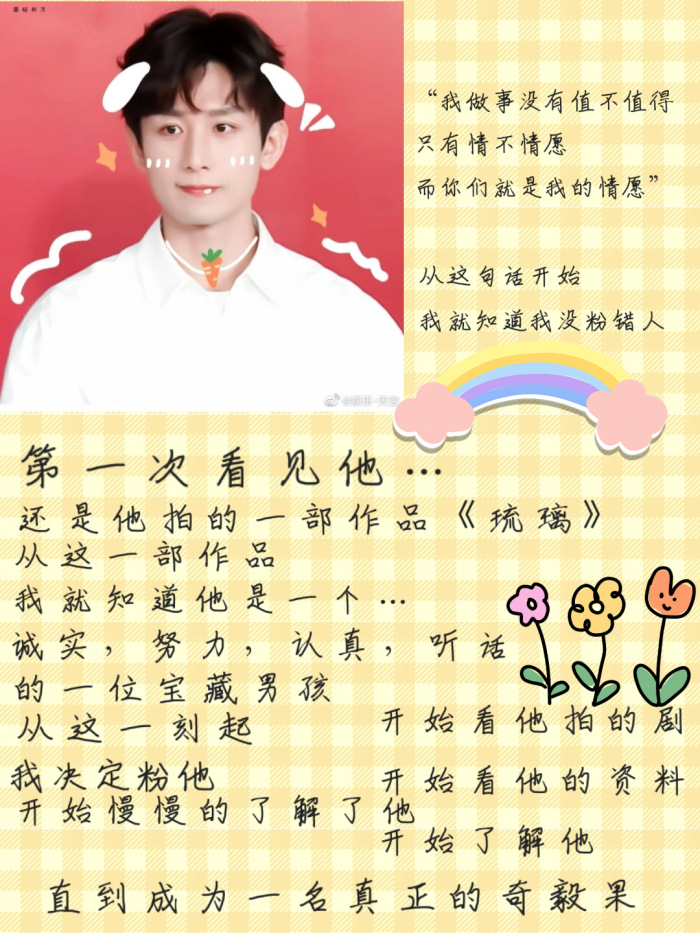 “我做事没有值不值得
只有情不情愿
而你们就是我的情愿”
从这句话开始
我就知道我没粉错人
第一次看见他…
还是他拍的一部作品《琉璃》
从这一部作品
我就知道他是一个…
诚实，努力，认真，听话
的一位宝藏男孩
从这一刻起
我决定粉他
开始慢慢的了解了他
开始看他拍的剧
开始看他的资料
开始了解他
直到成为一名真正的奇毅果